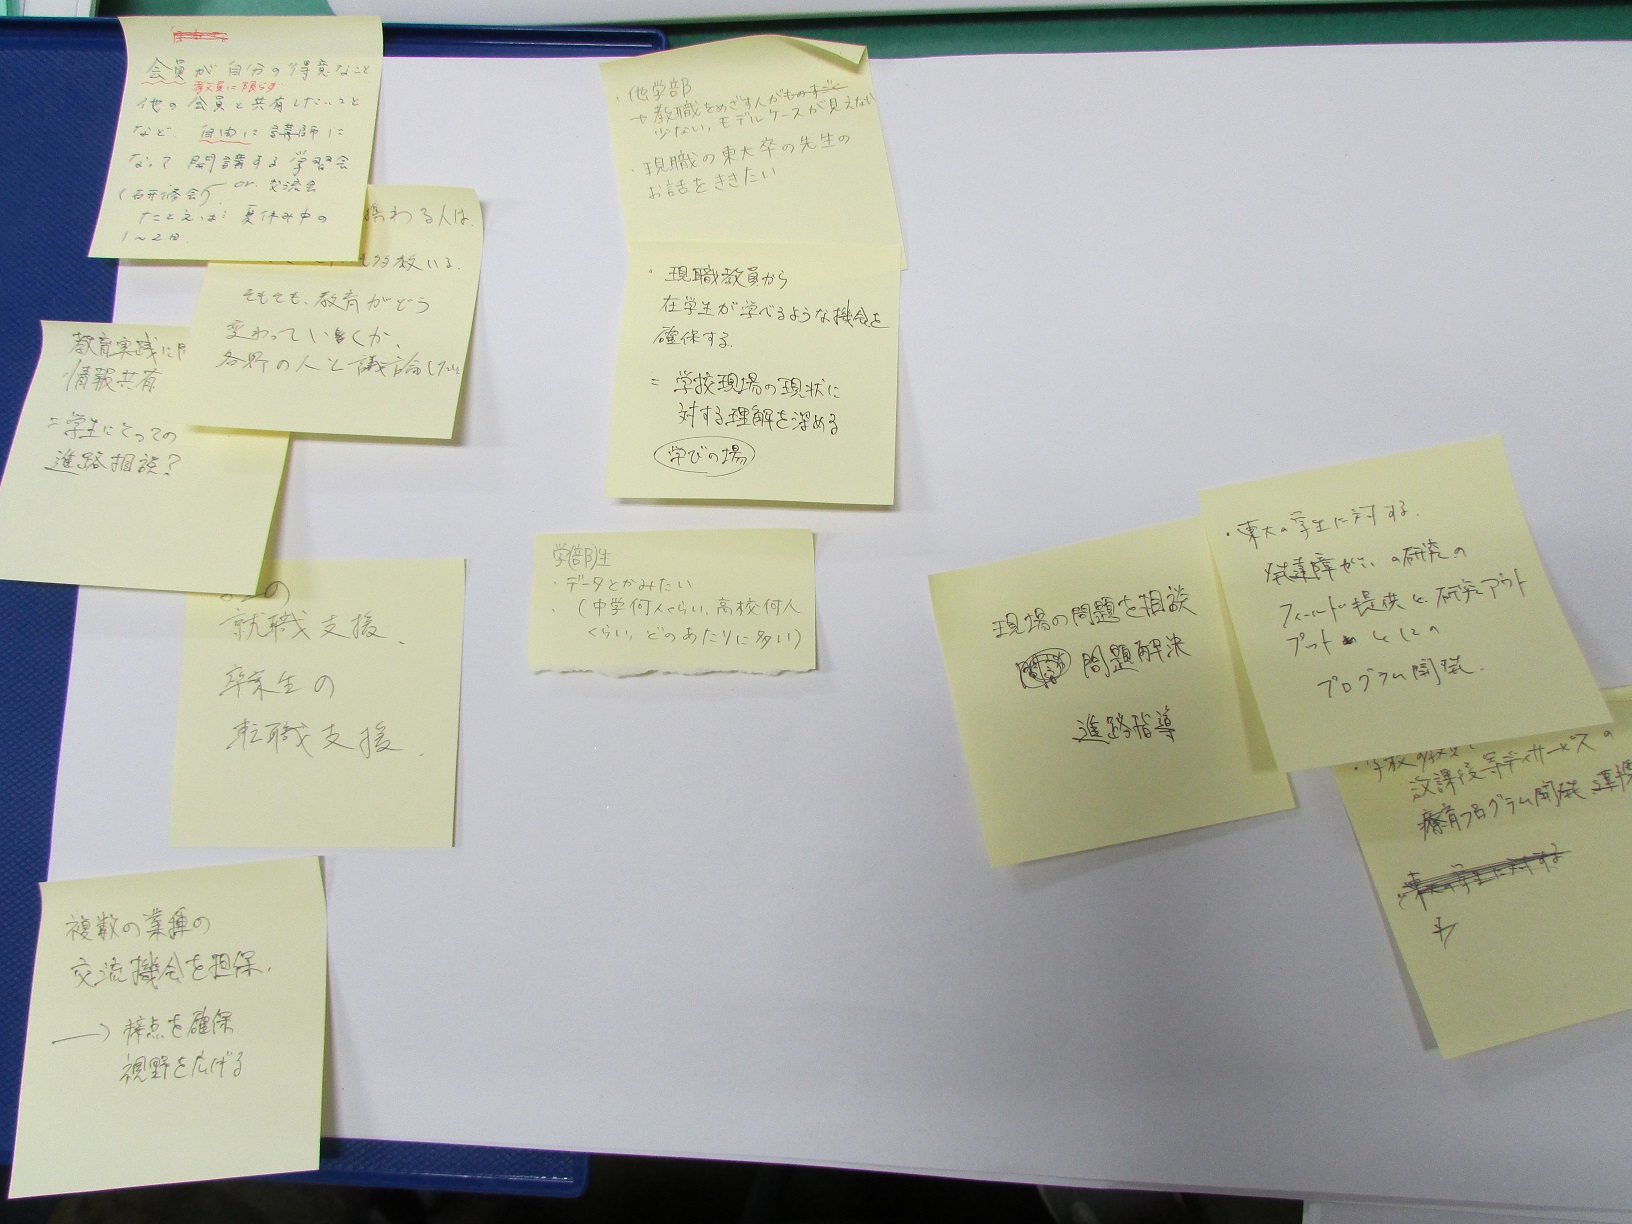 会員が自分の得意なこと
教員に限らず
他の会員と共有したいこと
など、自由に講師に
なって開講する学習会
(研修会) or 交流会
たとえば 夏休み中の
1〜2日
携わる人は
多数いる。
そもそも、教育がどう
変わっていくか、
各界の人と議論したい
教育実践に
情報共有
=学生にとっての
進路相談?
の
就職支援、
卒業生の
転職支援。
複数の業種の
交流機会を担保。
→ 接点を確保
視野を広げる
・他学部
や教職をめざす人がものすごく
少ない、モデルケースが見えない
・現職の東大卒の先生の
お話をききたい
・現職教員から
在学生が学べるような機会を
確保する
= 学校現場の現状に
対する理解を深める
学びの場
学部生
・データとかみたい
・(中学何人くらい、高校何人
くらい、どのあたりに多い)
現場の問題を相談
問題解決
進路指導
・東大の学生に対する
発達障がいの研究の
フィールド提供と研究アウト
プットとしての
プログラム開発。
・学校の教員と
放課後等デイサービスの
療育プログラム開発、連携
東大の学生に対する